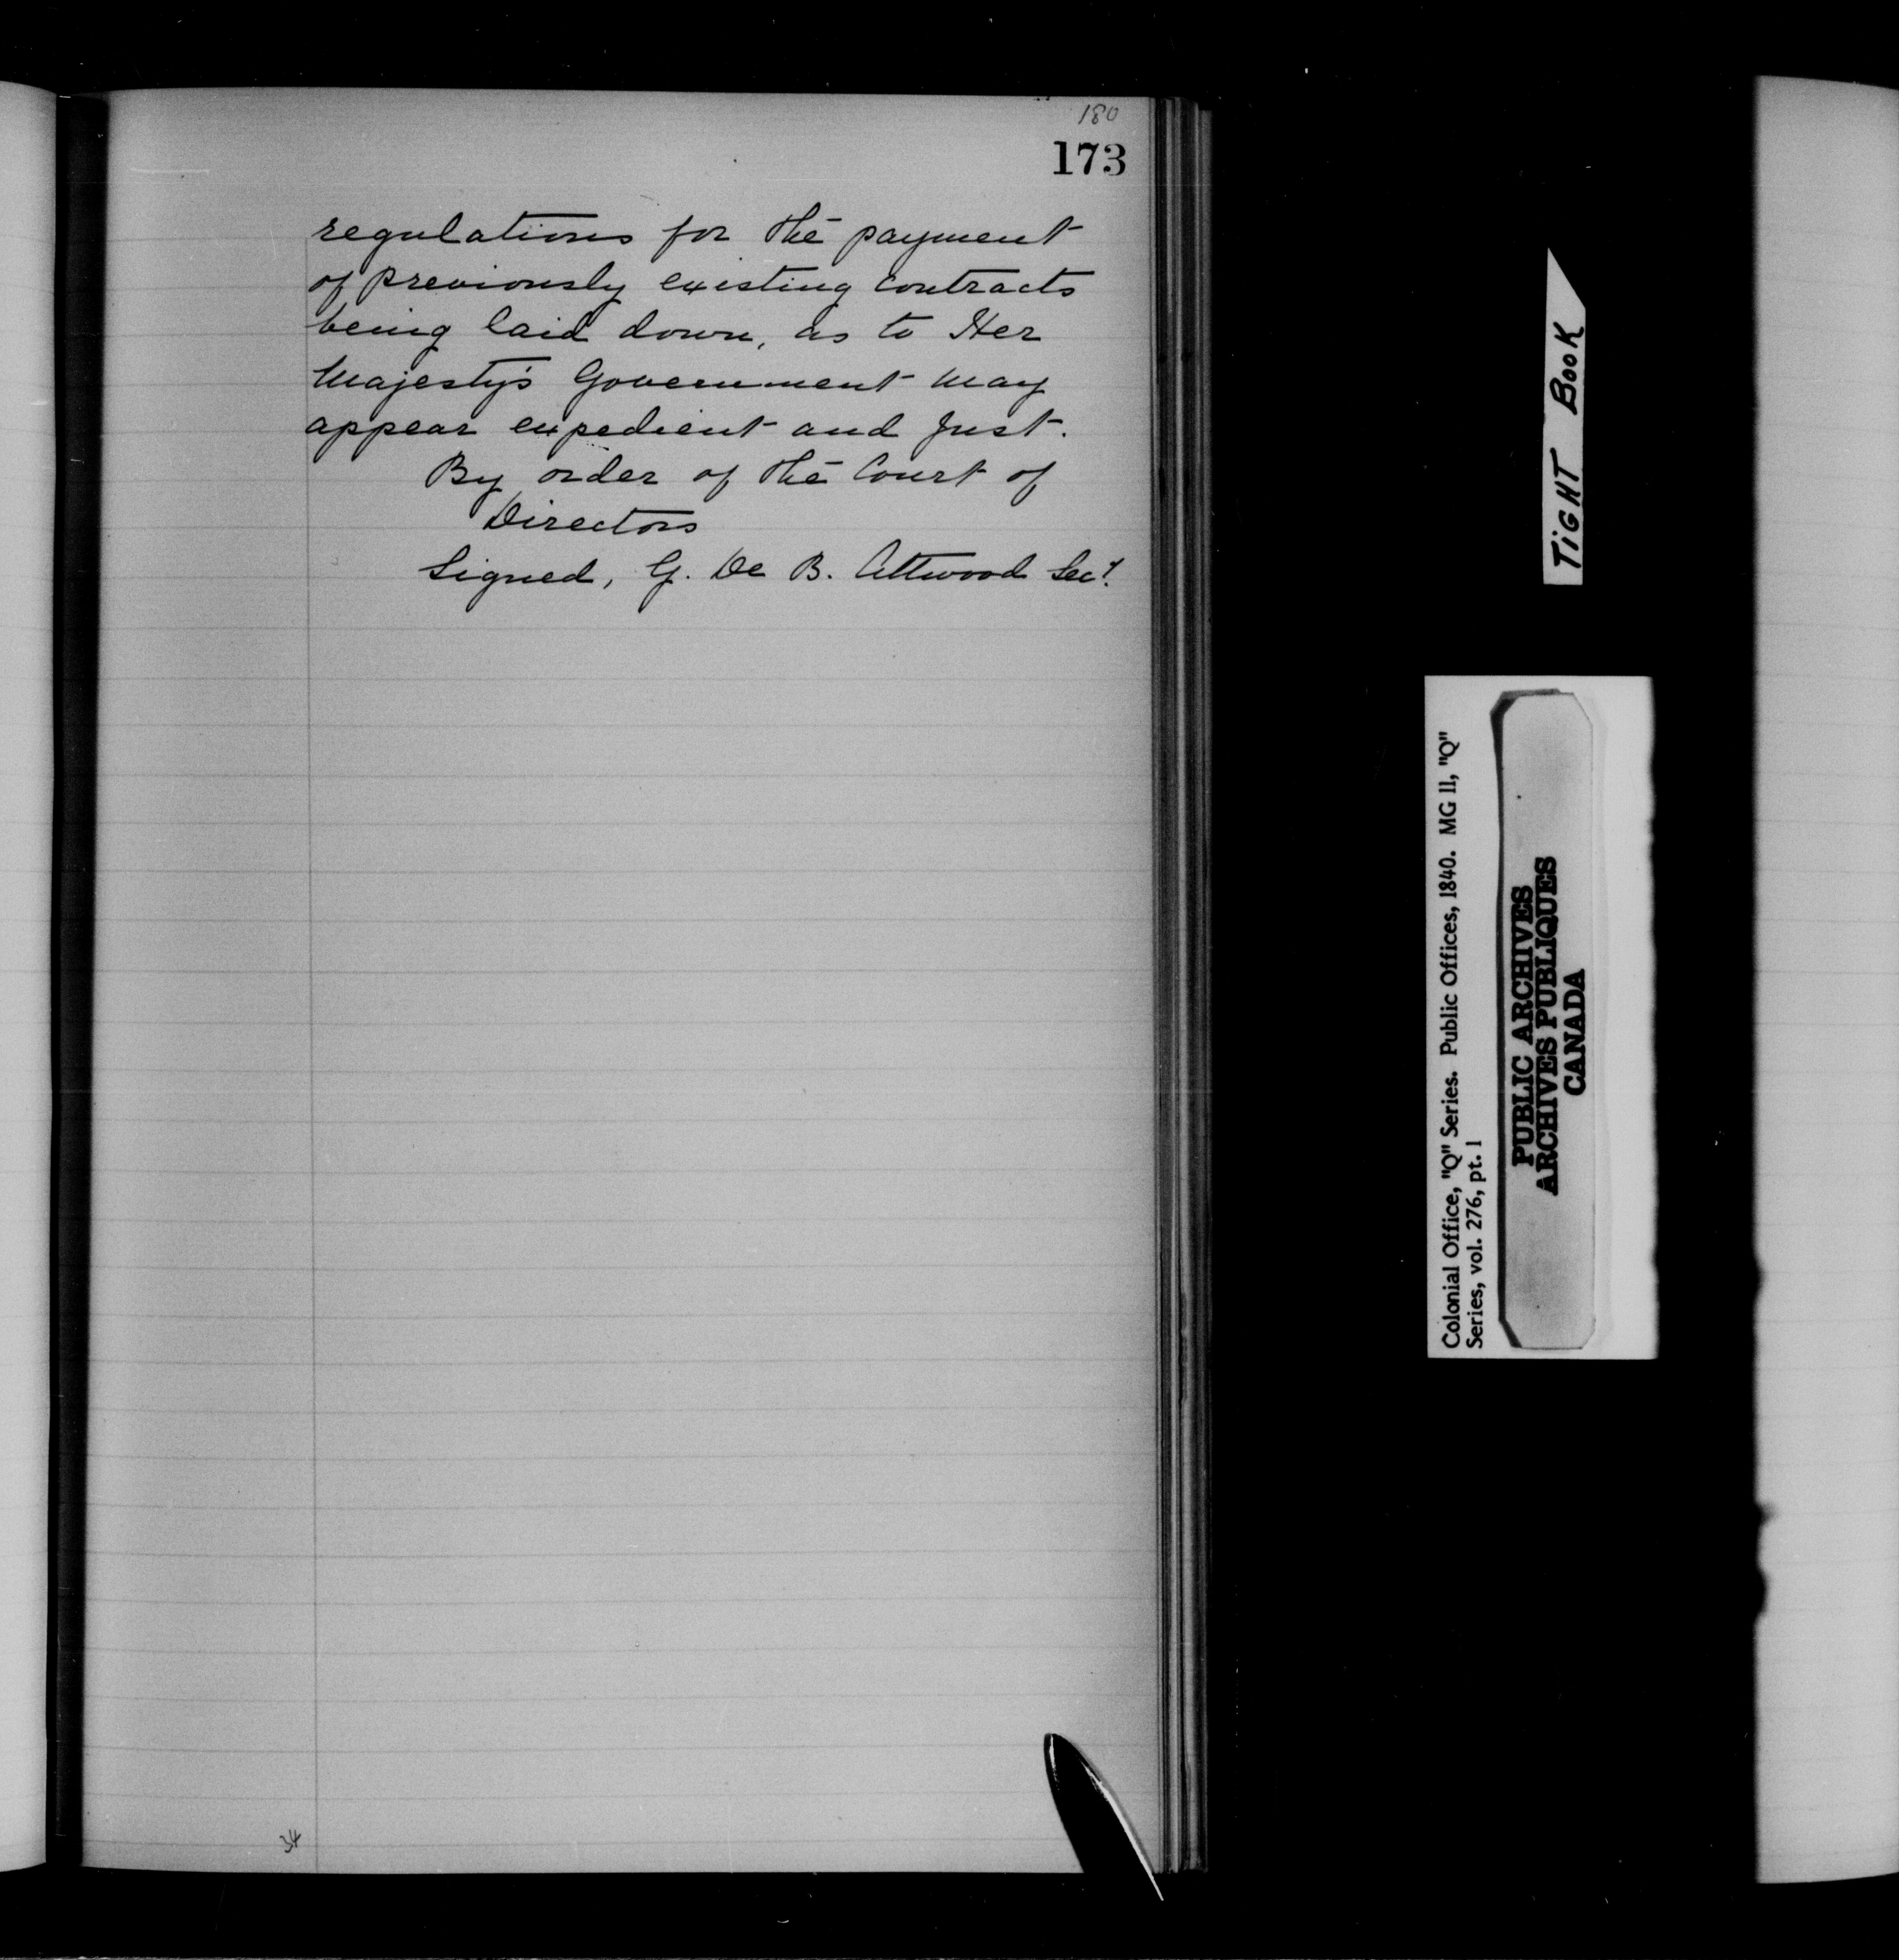 180
173
regulations for the payment
of previously existing contracts
being laid down, as to Her
Majesty's Government may
appear expedient and just.
By order of the Court of
Directors
Signed, G. De B. Attwood Secy.
34
TIGHT BOOK
Colonial Office, "Q" Series. Public Offices, 1840. MG 11, "Q"
Series, vol. 276, pt. 1
PUBLIC ARCHIVES
ARCHIVES PUBLIQUES
CANADA